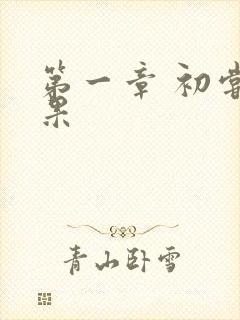 第一章 初尝
果
青山卧雪